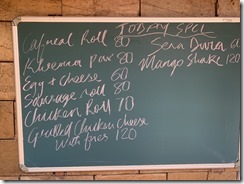 TODAY SPCL
Oatmeal Roll 80
Pav 80
Egg + cheese 60
Sausage roll 80
Chicken Roll 70
Grilled Chicken Cheese
with fries 120
Mango Shake 120